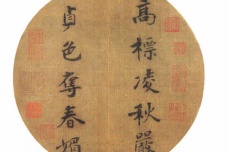 高標凌秋嚴
貞色奪春媚